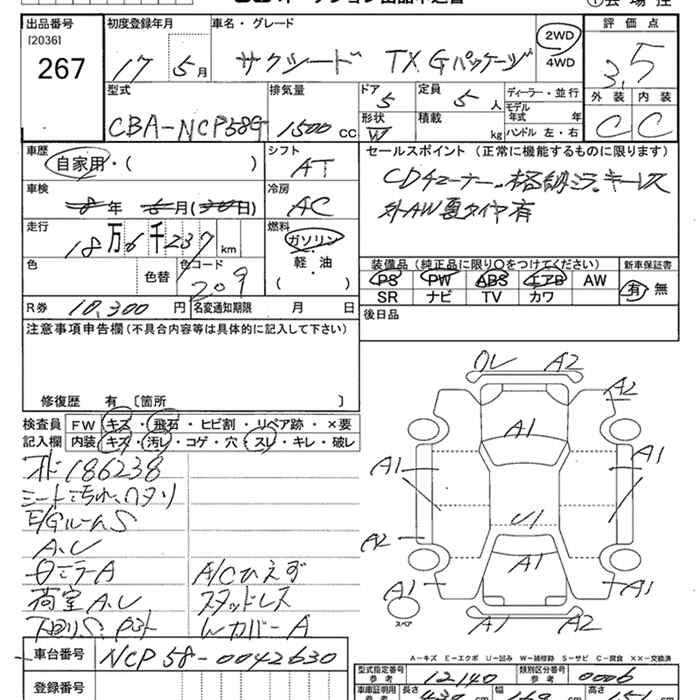 出品番号 初度登録年月 車名・グレード 評価点
[2036]
267
17 5月 サクシード TX Gパッケージ 2WD 4WD 3.5
型式 排気量 ドア 定員 ディーラー・並行 外装 内装
CBA-NCP58G 1500 CC 5 5人 モデル年式 年
形状 W 積載 kg ハンドル 左・右 C C
車歴 シフト セールスポイント (正常に機能するものに限ります)
自家用・( ) AT
CDチューナー.格納ミラ.キーレス
車検 冷房
8年 6月 AC 外AW夏タイヤ有
走行 燃料
18万6千237km ガソリン
色 色替 色コード 軽・油
209 ( )
装備品 (純正品に限り○をつけてください) 新車保証書
PS PW ABS エアB AW 有 無
SR ナビ TV カワ
R券 10,300円 名変通知期限 月 日 後日品
注意事項申告欄 (不具合内容等は具体的に記入して下さい)
修復歴 有 〔箇所 〕
検査員 FW キズ・飛石・ヒビ割・リペア跡・×要
記入欄 内装 キズ・汚レ・コゲ・穴・スレ・キレ・破レ
186238
シート汚れ、ヘタリ
E/GルームS
A.U
ミラーA A/Cひえず
荷室A.U スタッドレス
WカバーA
車台番号 NCP58-0042630
登録番号
A2
A2
A1
A1 A1
U1
A2
A1
A1 A1
スペア
A1 A2
A-キズ E-エクボ U-凹み W-補修跡 S-サビ C-腐食 ××-交換済
型式指定番号 参考 12140 類別区分番号 参考 0006
車庫証明用 参考 長さ 幅 高さ